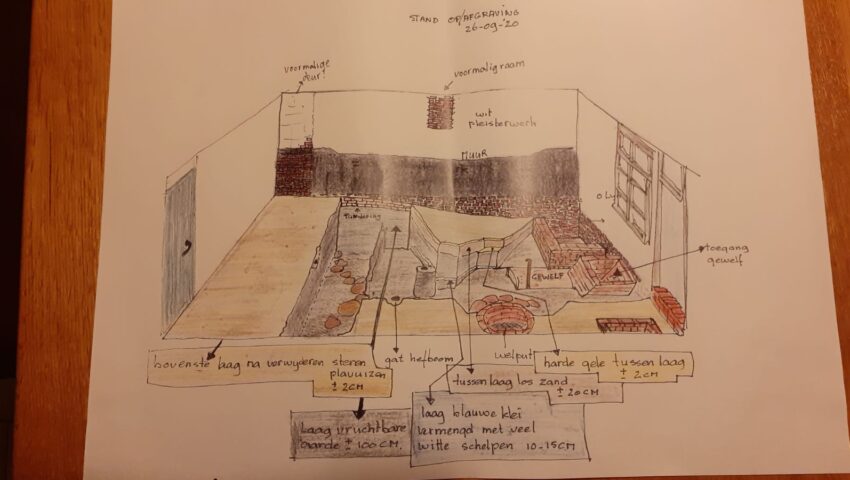 STAND OP/AFGRAVING
26-09-'20
voormalige
deur!
voormalig raam
wit
pleisterwerk
MUUR
Fundering
toegang
gewelf
GEWELF
gat hefboom
welput
bovenste laag na verwyderen stenen
plavuizen
± 2CM
harde gele tussen laag
± 2 CM
tussenlaag los zand
± 20 CM
laag vruchtbare
aarde ± 100 CM.
laag blauwe klei
vermengd met veel
witte schelpen 10-15CM